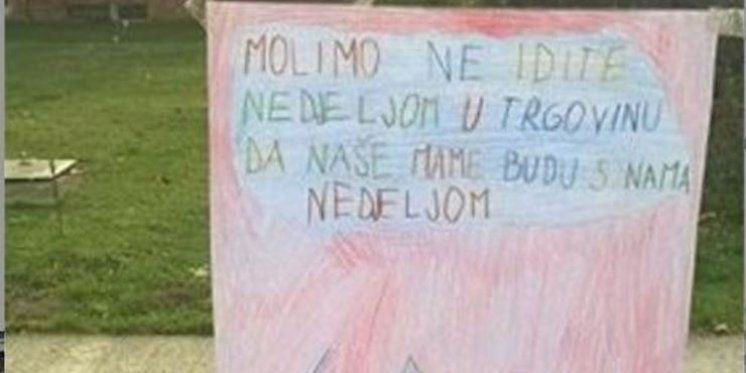 MOLIMO NE IDITE
NEDJELJOM U TRGOVINU
DA NAŠE MAME BUDU S NAMA
NEDJELJOM